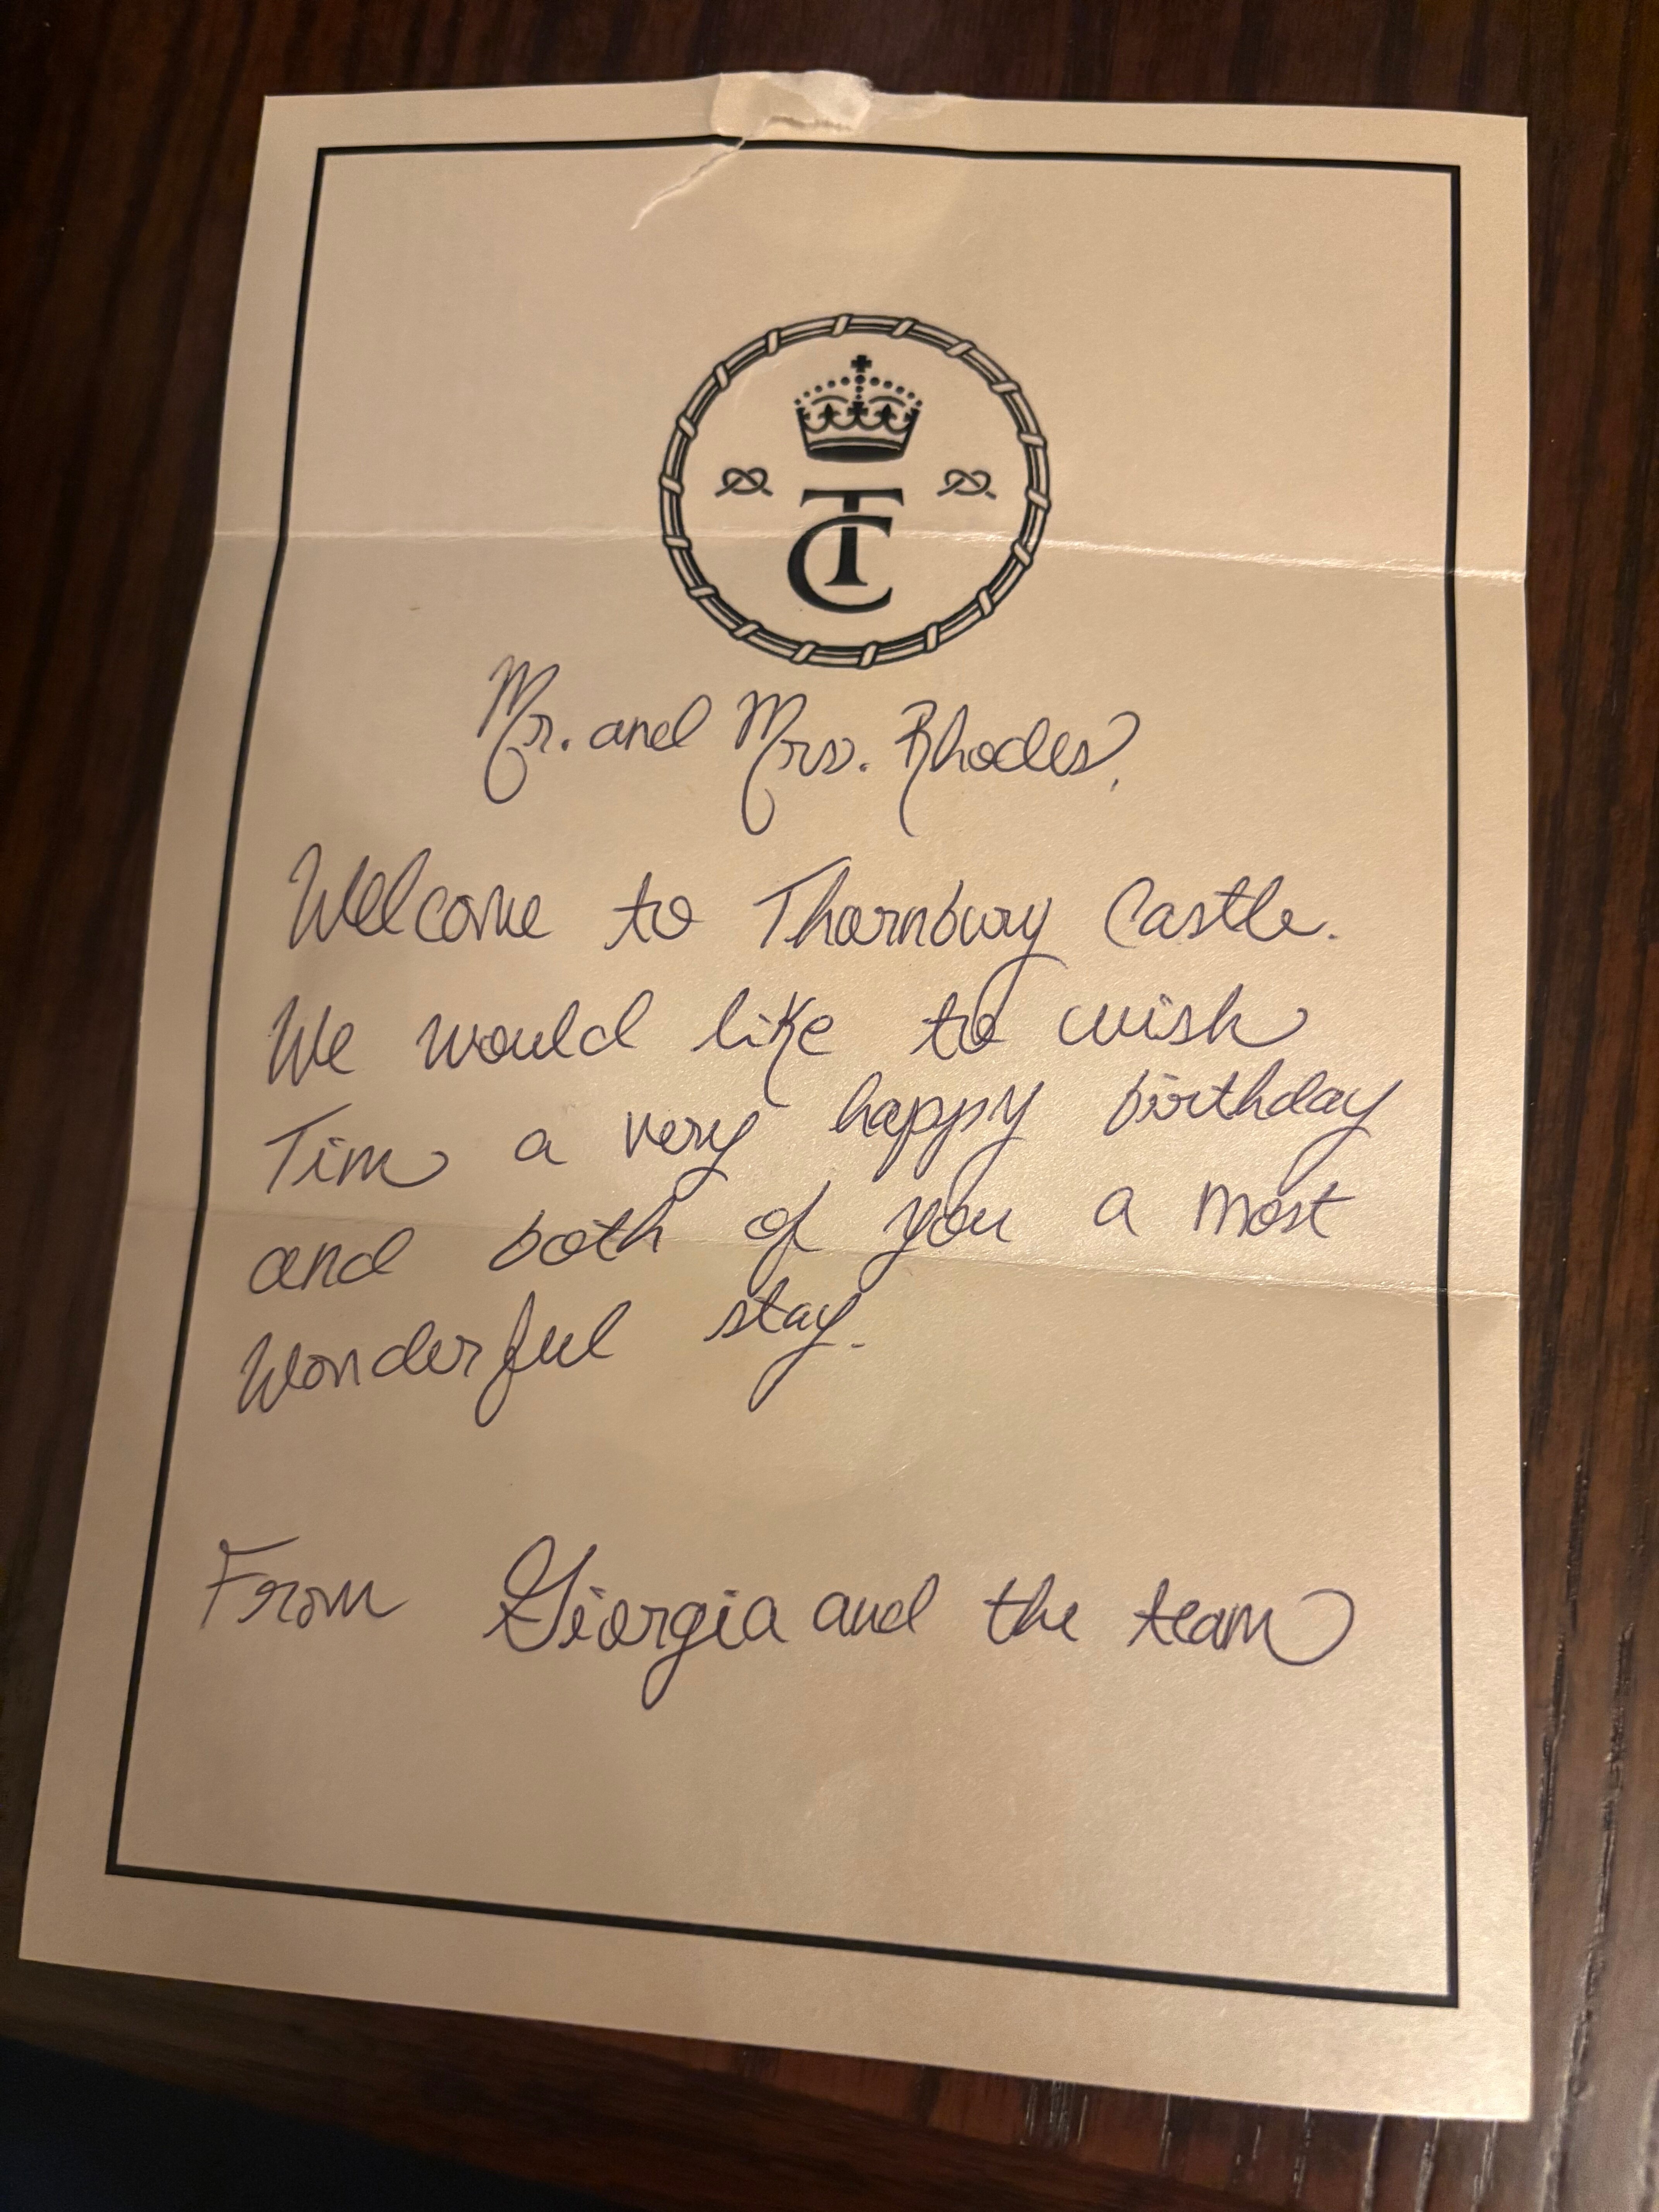 TC
Mr. and Mrs. Rhodes,
Welcome to Thornbury Castle.
We would like to wish
Tim a very happy birthday
and both of you a most
wonderful stay.
From Giorgia and the team